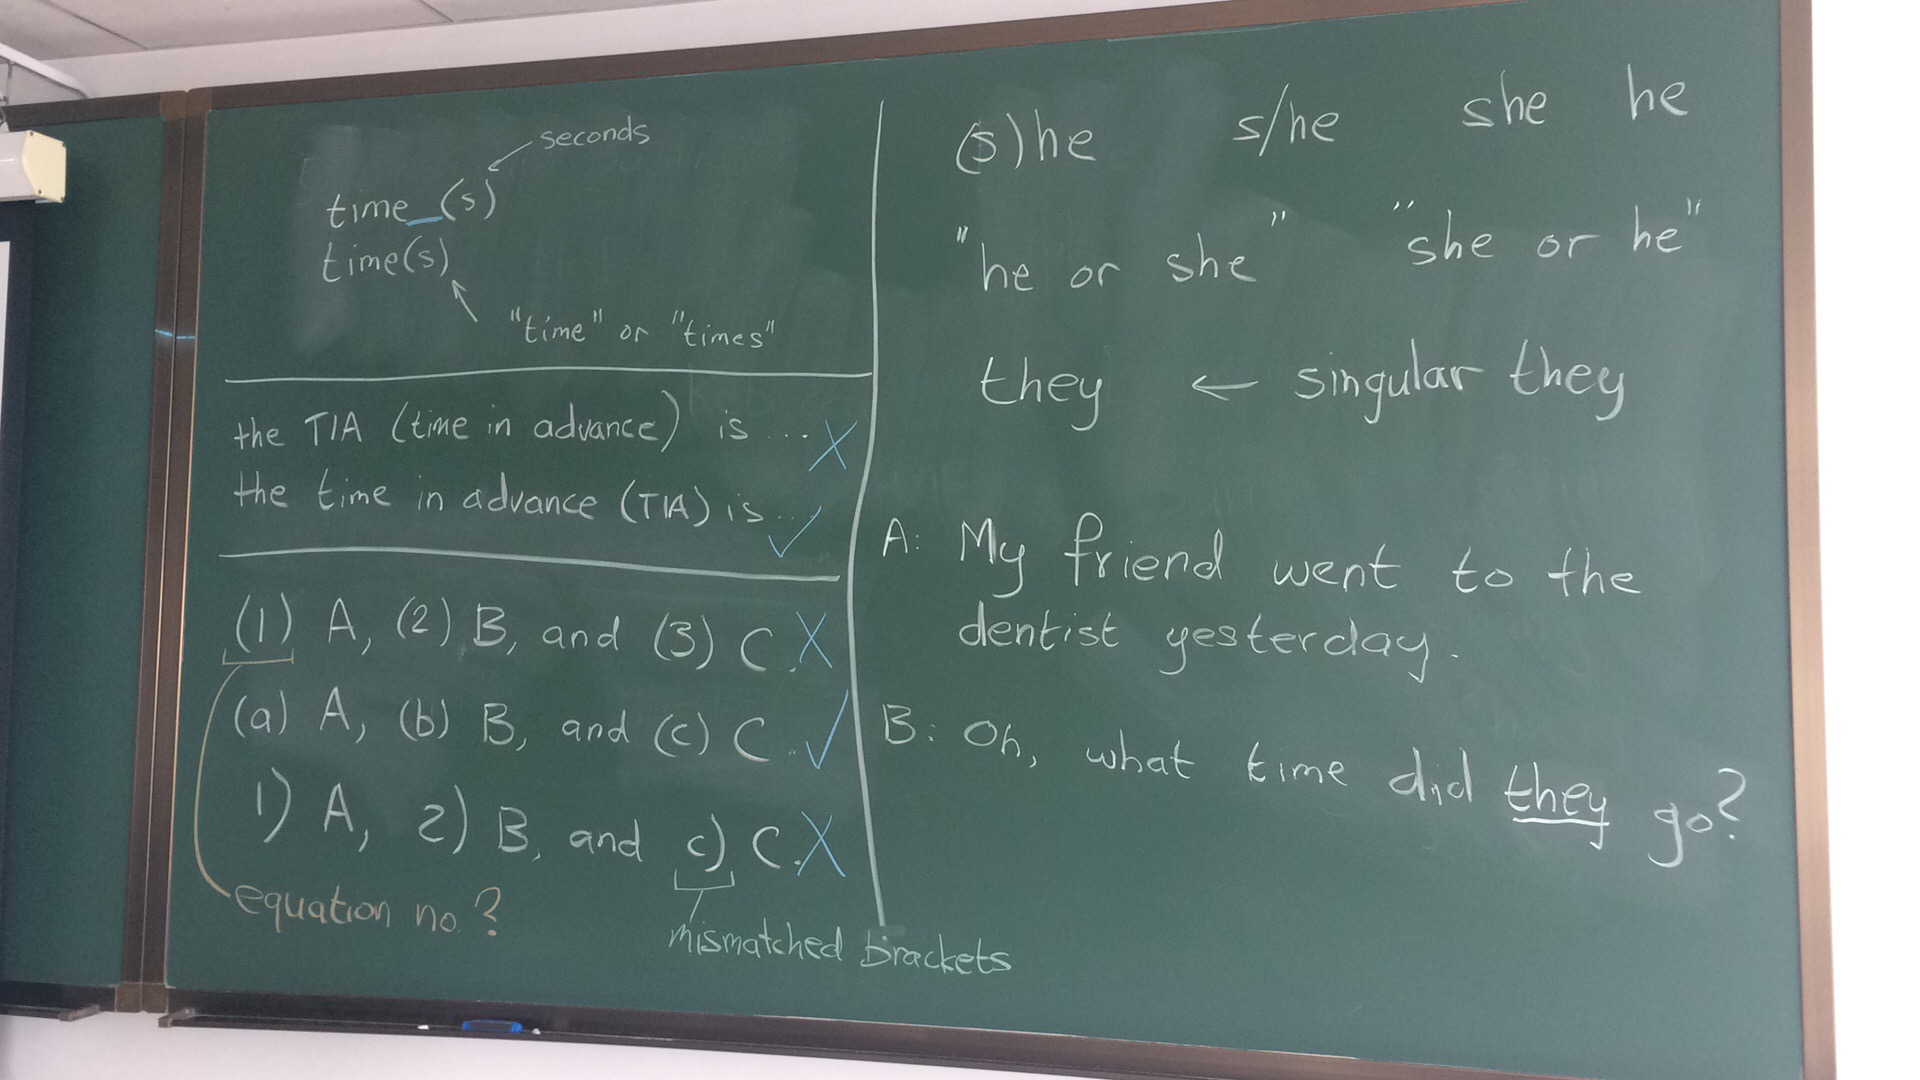 seconds
time_(s)
time(s)
"time" or "times"
the TIA (time in advance) is ... X
the time in advance (TIA) is ... ✓
(1) A, (2) B, and (3) C. X
(a) A, (b) B, and (c) C. ✓
1) A, 2) B, and c) C. X
equation no?
mismatched brackets
(s)he s/he she he
"he or she" "she or he"
they ← singular they
A: My friend went to the
dentist yesterday.
B: Oh, what time did they go?